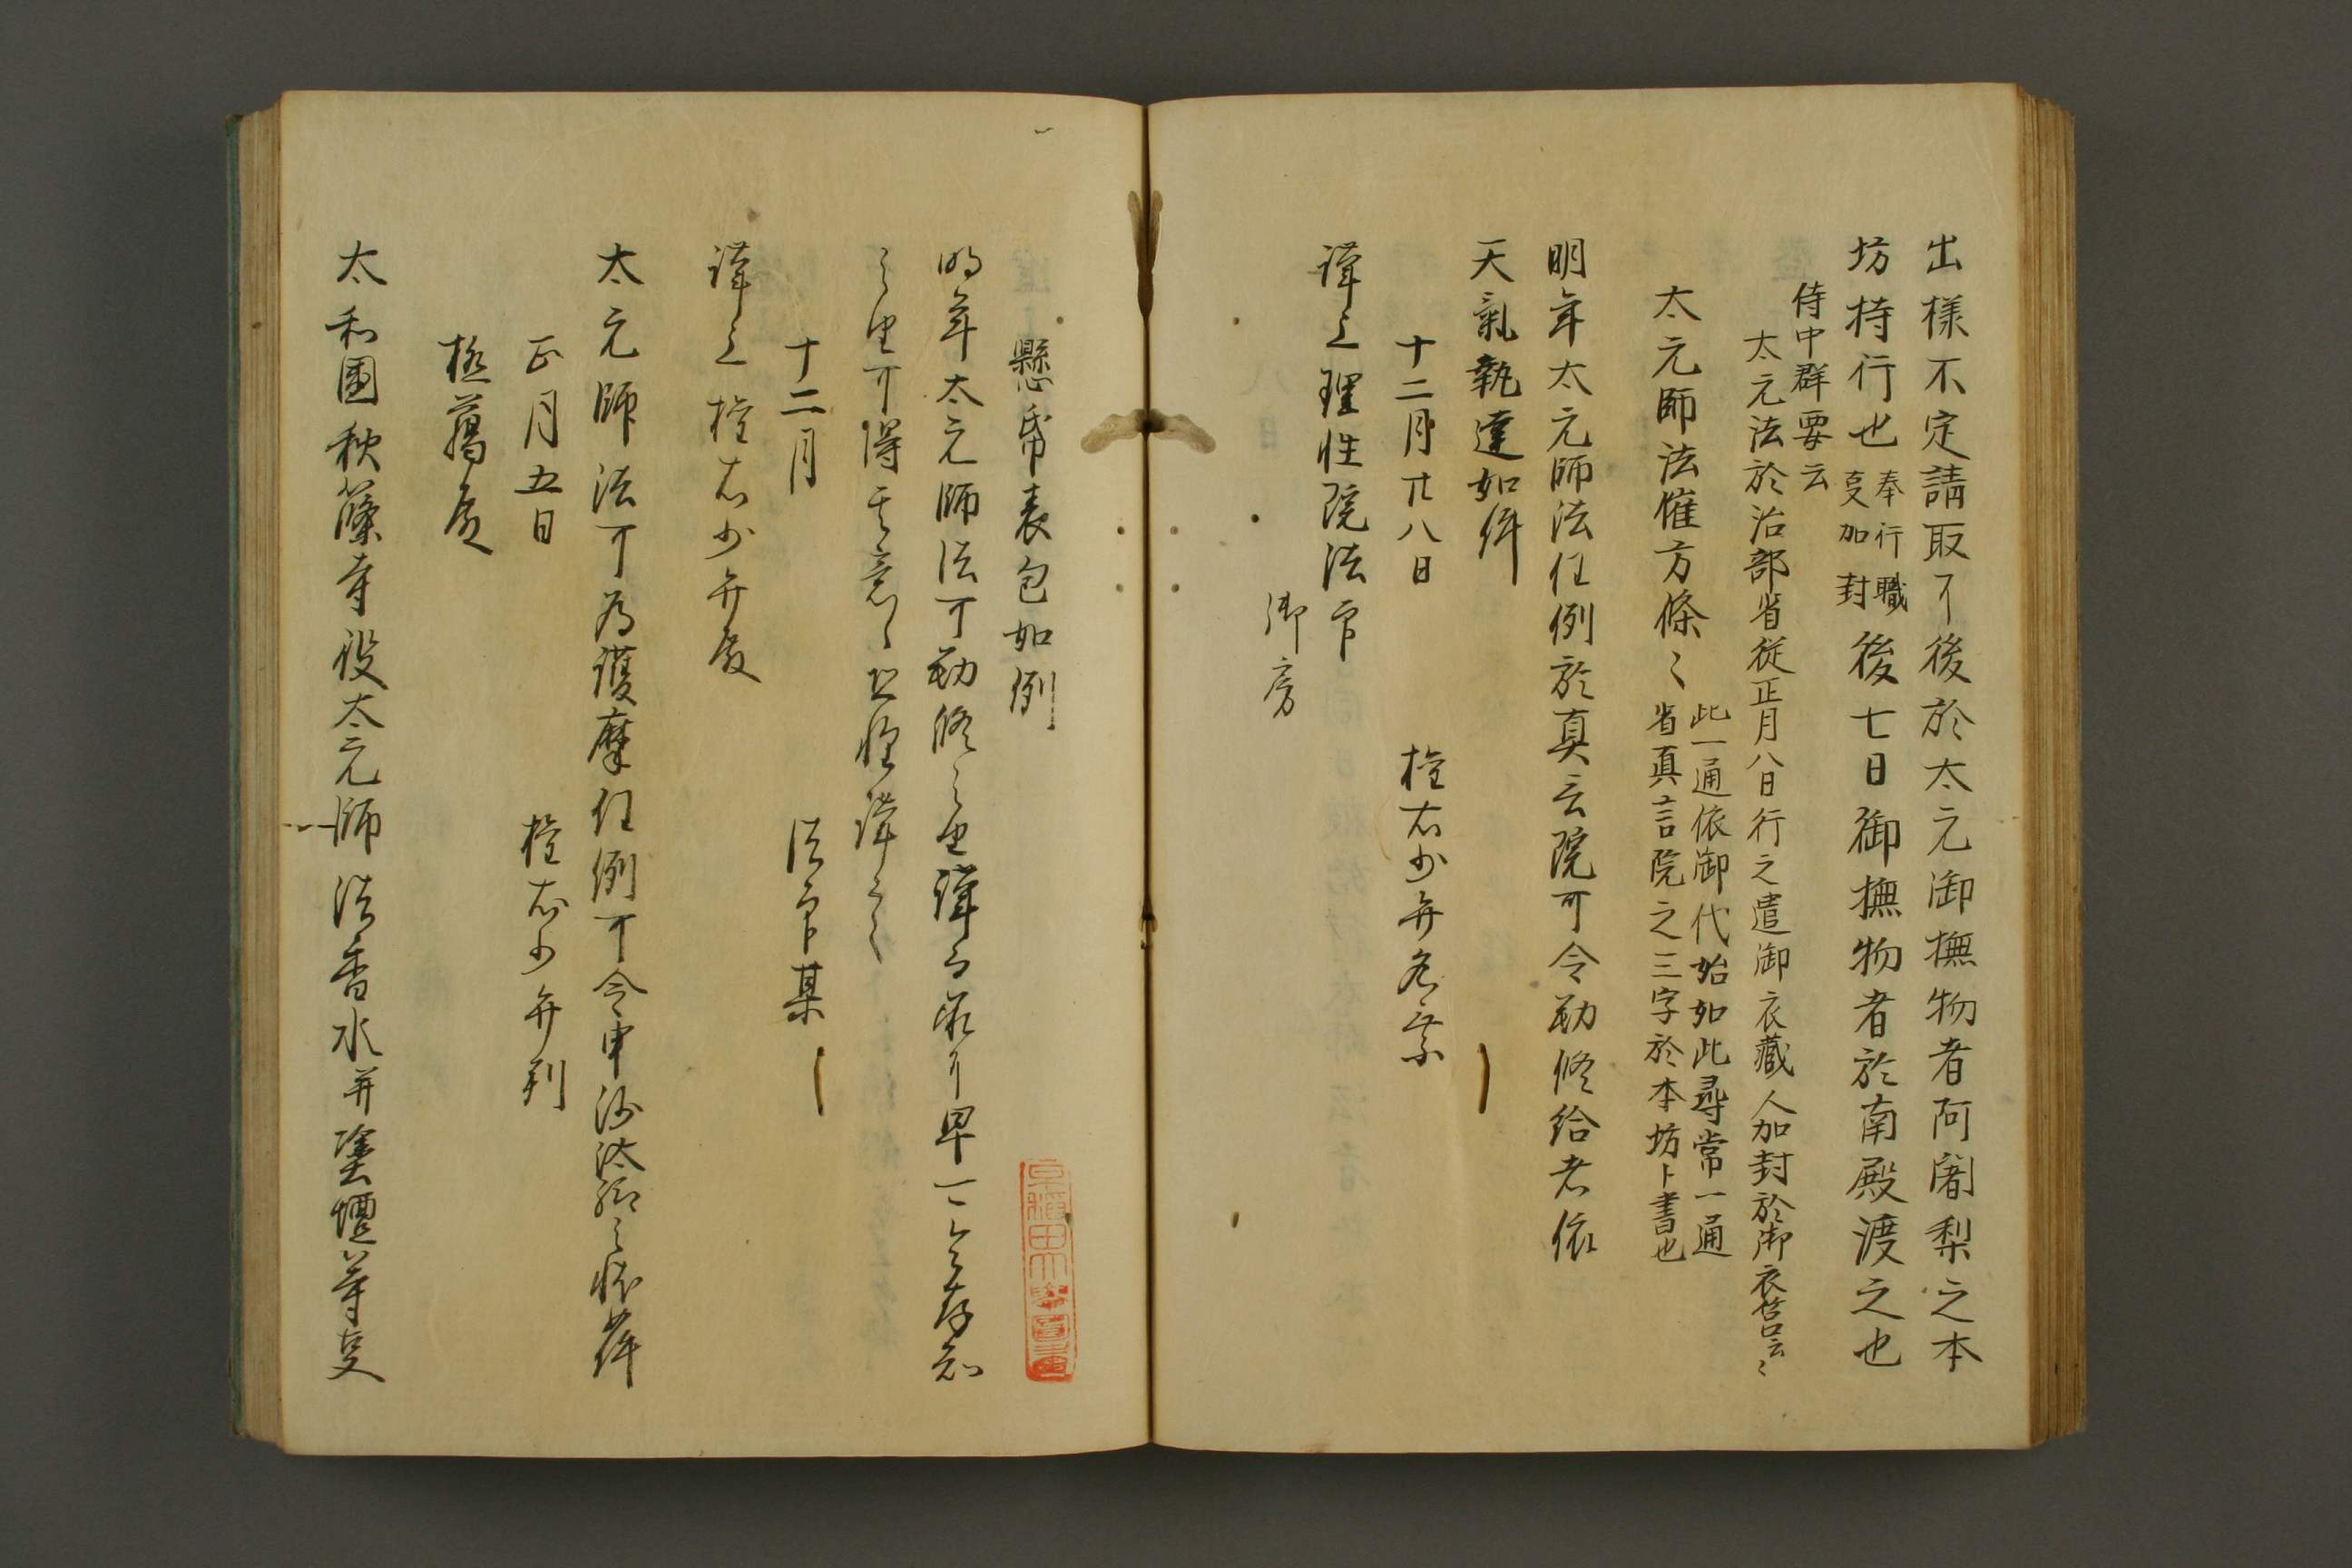 出様不定請取了後於太元御撫物者阿闍梨之本
坊持行也
奉行職
㕝加封
後七日御撫物者於南殿渡之也
侍中群要云
太元法於治部省従正月八日行之遣御衣蔵人加封於御衣筥云〻
太元師法催方條〻
此一通依御代始如此尋常一通
省真言院之三字於本坊ト書也
明年太元師法任例於真言院可令勤修給者依
天氣執達如件
十二月廿八日
権右少弁
謹上理性院法印
御房
懸帋表包如例
明年太元師法可勤修之由謹承
之由可得其意
十二月
法印某
謹上 権右少弁殿
太元師法可為護摩任例可令申沙汰給之状如件
正月五日
権右少弁判
極﨟殿
太和國秋篠寺役太元師法香水并塗壇等㕝
早稲田大學圖書